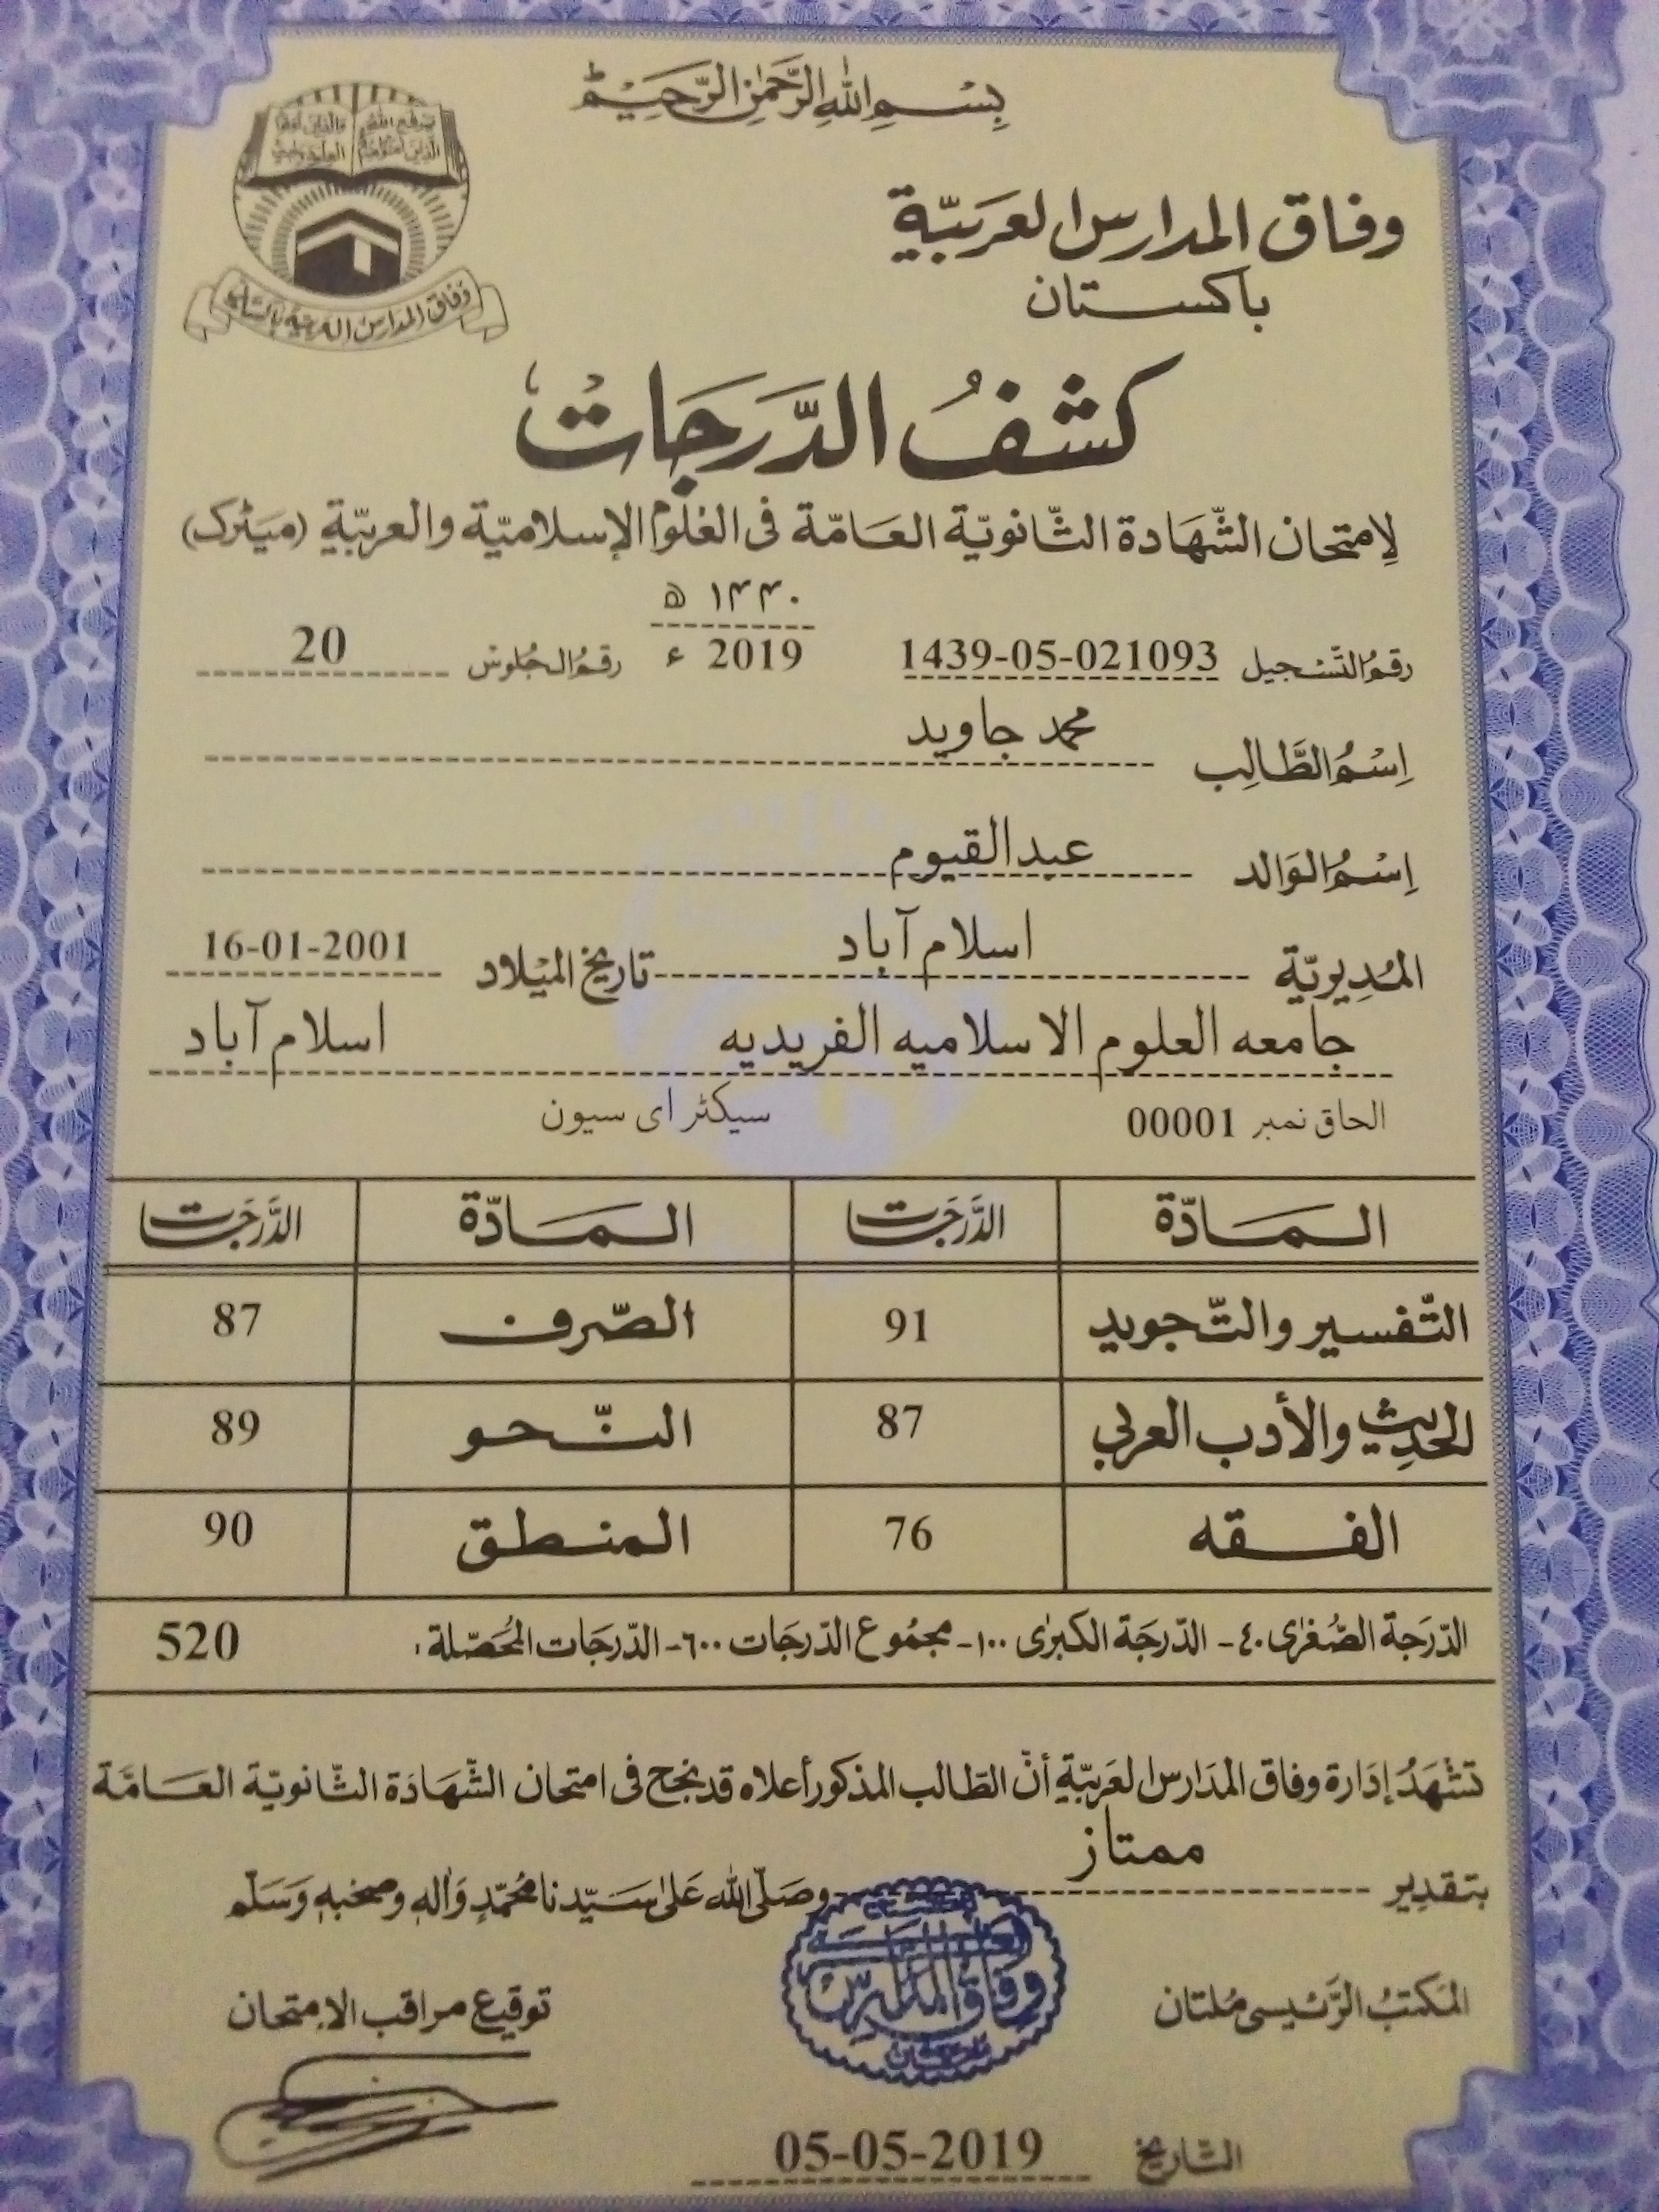 بِسْمِ اللهِ الرَّحْمٰنِ الرَّحِيْمِ
يرفع الله الذين آمنوا منكم والذين أوتوا العلم درجٰت
وفاق المدارس العربیه پاکستان
وفاق المدارس العَرَبیّة
باکستان
كشفُ الدَّرَجَات
لِامتحان الشّهَادة الثّانويّة العَامّة فى العُلوم الإسلاميّة والعربيّة (ميٹرک)
رقمُ التَّسْجيل 1439-05-021093 ۱۴۴۰ ھ 2019 ء رقمُ الجُلوس 20
اِسْمُ الطَّالِب محمد جاوید
اِسْمُ الوَالد عبدالقیوم
المُدِيريّة اسلام آباد تاريخ الميْلاد 16-01-2001
جامعه العلوم الاسلامیه الفریدیه اسلام آباد
الحاق نمبر 00001 سیکٹر ای سیون
المَادّة الدَّرَجَات المَادّة الدَّرَجَات
التّفسير والتّجويد 91 الصّرف 87
الحَدِيث والأدب العربي 87 النّحو 89
الفقه 76 المنطق 90
الدّرَجَة الصُّغرٰى ٤٠- الدّرجَة الكبرٰى ١٠٠- مجمُوع الدّرجَات ٦٠٠- الدّرجَات المُحَصّلة: 520
تشْهَدُ إدَارة وفاق المدَارس العَربيّة أنّ الطّالب المذكور أعلاه قد نجح فى امتحان الشّهَادَة الثّانويّة العَامَّة
بتقدِير ممتاز وصَلّى الله عَلٰى سَيّدنا مُحمّدٍ وَاٰلهٖ وصحْبهٖ وَسَلّم
المَكتبُ الرَّئيسى مُلتان توقيع مراقب الامتحان
وفاق المدارس العربية باكستان
التّاريخ 05-05-2019